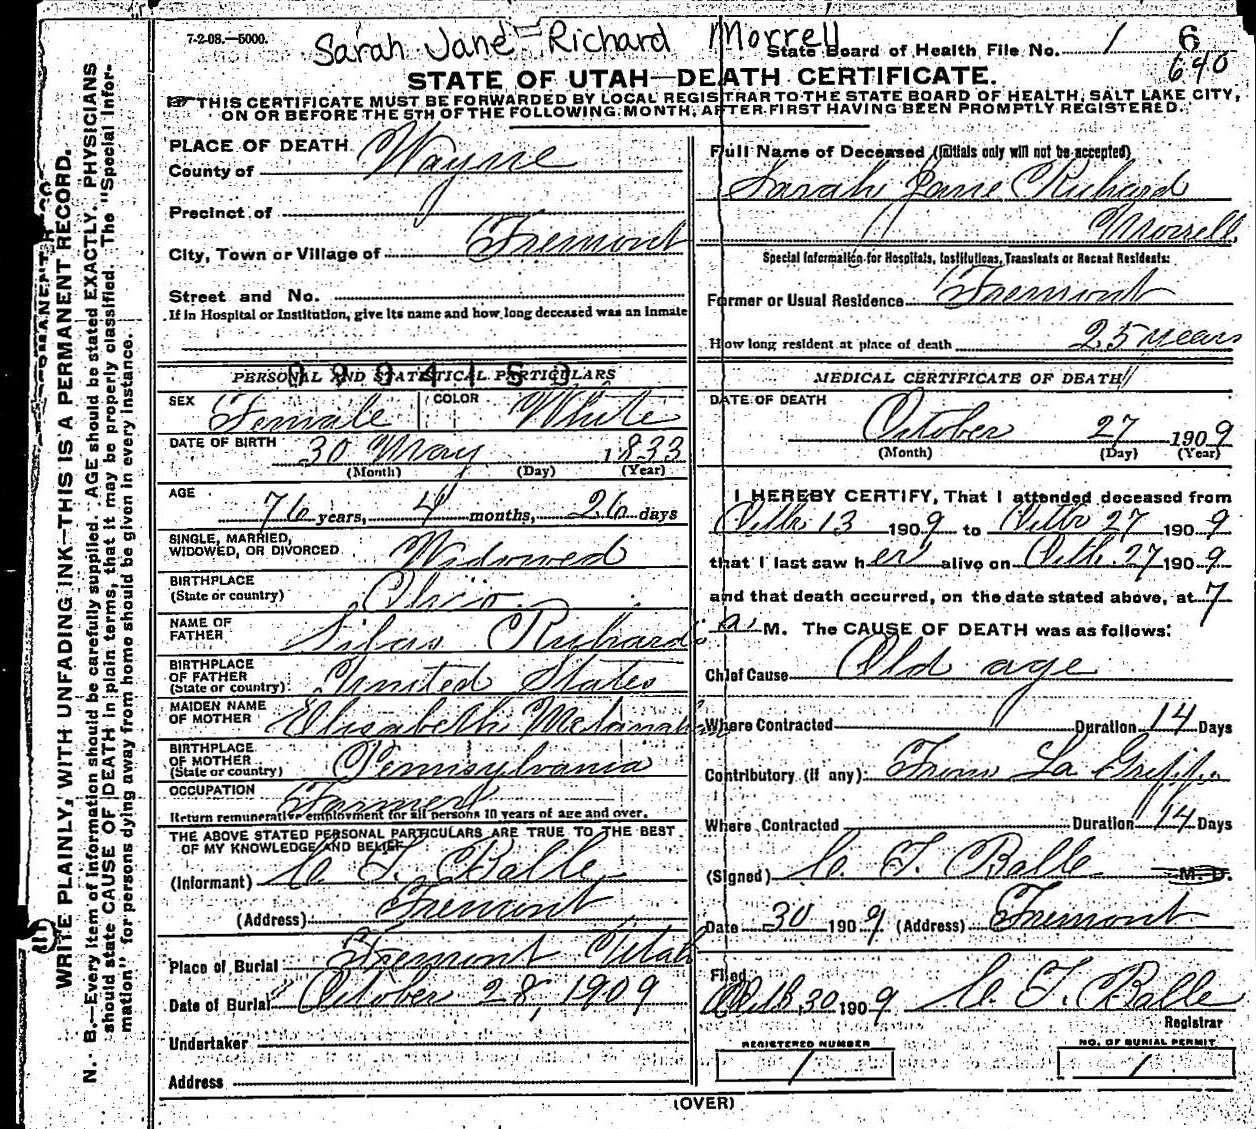 7-2-08.—5000.
Sarah Jane Richard Morrell
State Board of Health File No. 1 6
690
STATE OF UTAH—DEATH CERTIFICATE.
THIS CERTIFICATE MUST BE FORWARDED BY LOCAL REGISTRAR TO THE STATE BOARD OF HEALTH, SALT LAKE CITY,
ON OR BEFORE THE 5TH OF THE FOLLOWING MONTH, AFTER FIRST HAVING BEEN PROMPTLY REGISTERED.
WRITE PLAINLY, WITH UNFADING INK—THIS IS A PERMANENT RECORD.
N. B.—Every item of information should be carefully supplied. AGE should be stated EXACTLY. PHYSICIANS
should state CAUSE OF DEATH in plain terms, that it may be properly classified. The "Special Infor-
mation" for persons dying away from home should be given in every instance.
PLACE OF DEATH
County of Wayne
Precinct of
City, Town or Village of Fremont
Street and No.
If in Hospital or Institution, give its name and how long deceased was an inmate
PERSONAL AND STATISTICAL PARTICULARS
SEX Female COLOR White
DATE OF BIRTH 30 May 1833
(Month) (Day) (Year)
AGE
76 years, 4 months, 26 days
SINGLE, MARRIED,
WIDOWED, OR DIVORCED Widowed
BIRTHPLACE
(State or country) Ohio
NAME OF
FATHER Silas Richards
BIRTHPLACE
OF FATHER
(State or country) United States
MAIDEN NAME
OF MOTHER Elisabeth
BIRTHPLACE
OF MOTHER
(State or country) Pennsylvania
OCCUPATION Farmer
Return remunerative employment for all persons 10 years of age and over.
THE ABOVE STATED PERSONAL PARTICULARS ARE TRUE TO THE BEST
OF MY KNOWLEDGE AND BELIEF
(Informant) C F Balle
(Address) Fremont
Place of Burial Fremont Utah
Date of Burial October 28, 1909
Undertaker
Address
Full Name of Deceased (Initials only will not be accepted)
Sarah Jane Richard
Morrell
Special Information for Hospitals, Institutions, Transients or Recent Residents:
Former or Usual Residence Fremont
How long resident at place of death 25 years
MEDICAL CERTIFICATE OF DEATH
DATE OF DEATH
October 27 1909
(Month) (Day) (Year)
I HEREBY CERTIFY, That I attended deceased from
Octbr 13 1909 to Octbr 27 1909
that I last saw her alive on Octb. 27 1909
and that death occurred, on the date stated above, at 7
a. M. The CAUSE OF DEATH was as follows:
Chief Cause Old age
Where Contracted Duration 14 Days
Contributory (if any): From La Grippe
Where Contracted Duration 14 Days
(Signed) C F Balle M. D.
Date 30 1909 (Address) Fremont
Filed
Octb 30 1909 C. F. Balle
Registrar
REGISTERED NUMBER
1
NO. OF BURIAL PERMIT
1
(OVER)